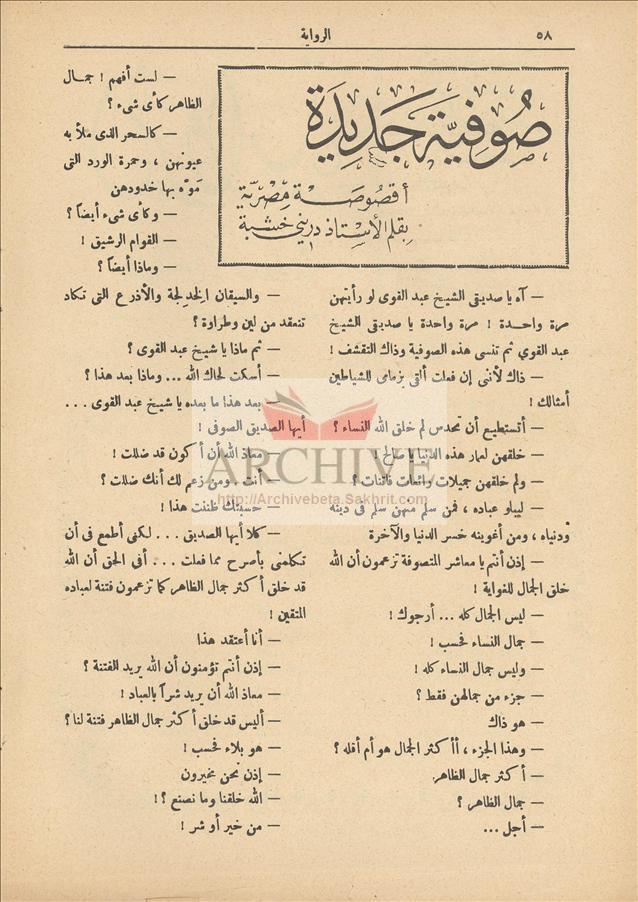 ٥٨
الرواية
صُوفيّة جَديدَة
أقصُوصَة مِصْريَّة
بِقلم الأسْتاذ دريني خشبة
— آه يا صديقى الشيخ عبد القوى لو رأيتهن
مرة واحدة ! مرة واحدة يا صديقى الشيخ
عبد القوي ثم تنسى هذه الصوفية وذاك التقشف !
— ذاك لأننى إن فعلت ألقى بزمامى للشياطين
أمثالك !
— أتستطيع أن تحدس لم خلق الله النساء ؟
— خلقهن لعمار هذه الدنيا يا صالح !
— ولم خلقهن جميلات رائعات فاتنات ؟
— ليبلو عباده ، فمن سلم منهن سلم فى دينه
ودنياه ، ومن أغوينه خسر الدنيا والآخرة
— إذن أنتم يا معاشر المتصوفة تزعمون أن الله
خلق الجمال للغواية !
— ليس الجمال كله ... أرجوك !
— جمال النساء فحسب !
— وليس جمال النساء كله !
— جزء من جمالهن فقط ؟
— هو ذاك
— وهذا الجزء ، أأكثر الجمال هو أم أقله ؟
— أكثر جمال الظاهر
— جمال الظاهر ؟
— أجل ...
— لست أفهم ! جمال
الظاهر كأى شىء ؟
— كالسحر الذى ملأ به
عيونهن ، وحمرة الورد التى
مَوّه بها خدودهن
— وكأى شىء أيضاً ؟
— القوام الرشيق !
— وماذا أيضاً ؟
— والسيقان الخدلجة والأذرع التى تكاد
تنعقد من لين وطراوة ؟
— ثم ماذا يا شيخ عبد القوى ؟
— أسكت لحاك الله ... وماذا بعد هذا ؟
— بعد هذا ما بعده يا شيخ عبد القوى ...
أيها الصديق الصوفى !
— معاذ الله أن أكون قد ضللت !
— أنت . ومن زعم لك أنك ضللت ؟
— حسبتك ظننت هذا !
— كلا أيها الصديق ... لكنى أطمع فى أن
تكلمنى بأصرح مما فعلت ... أفى الحق أن الله
قد خلق أكثر جمال الظاهر كما تزعمون فتنة لعباده
المتقين !
— أنا أعتقد هذا
— إذن أنتم تؤمنون أن الله يريد الفتنة ؟
— معاذ الله أن يريد شراً بالعباد !
— أليس قد خلق أكثر جمال الظاهر فتنة لنا ؟
— هو بلاء فحسب !
— إذن نحن مخيرون
— الله خلقنا وما نصنع ؟!
— من خير أو شر !
ARCHIVE
http://Archivebeta.Sakhrit.com